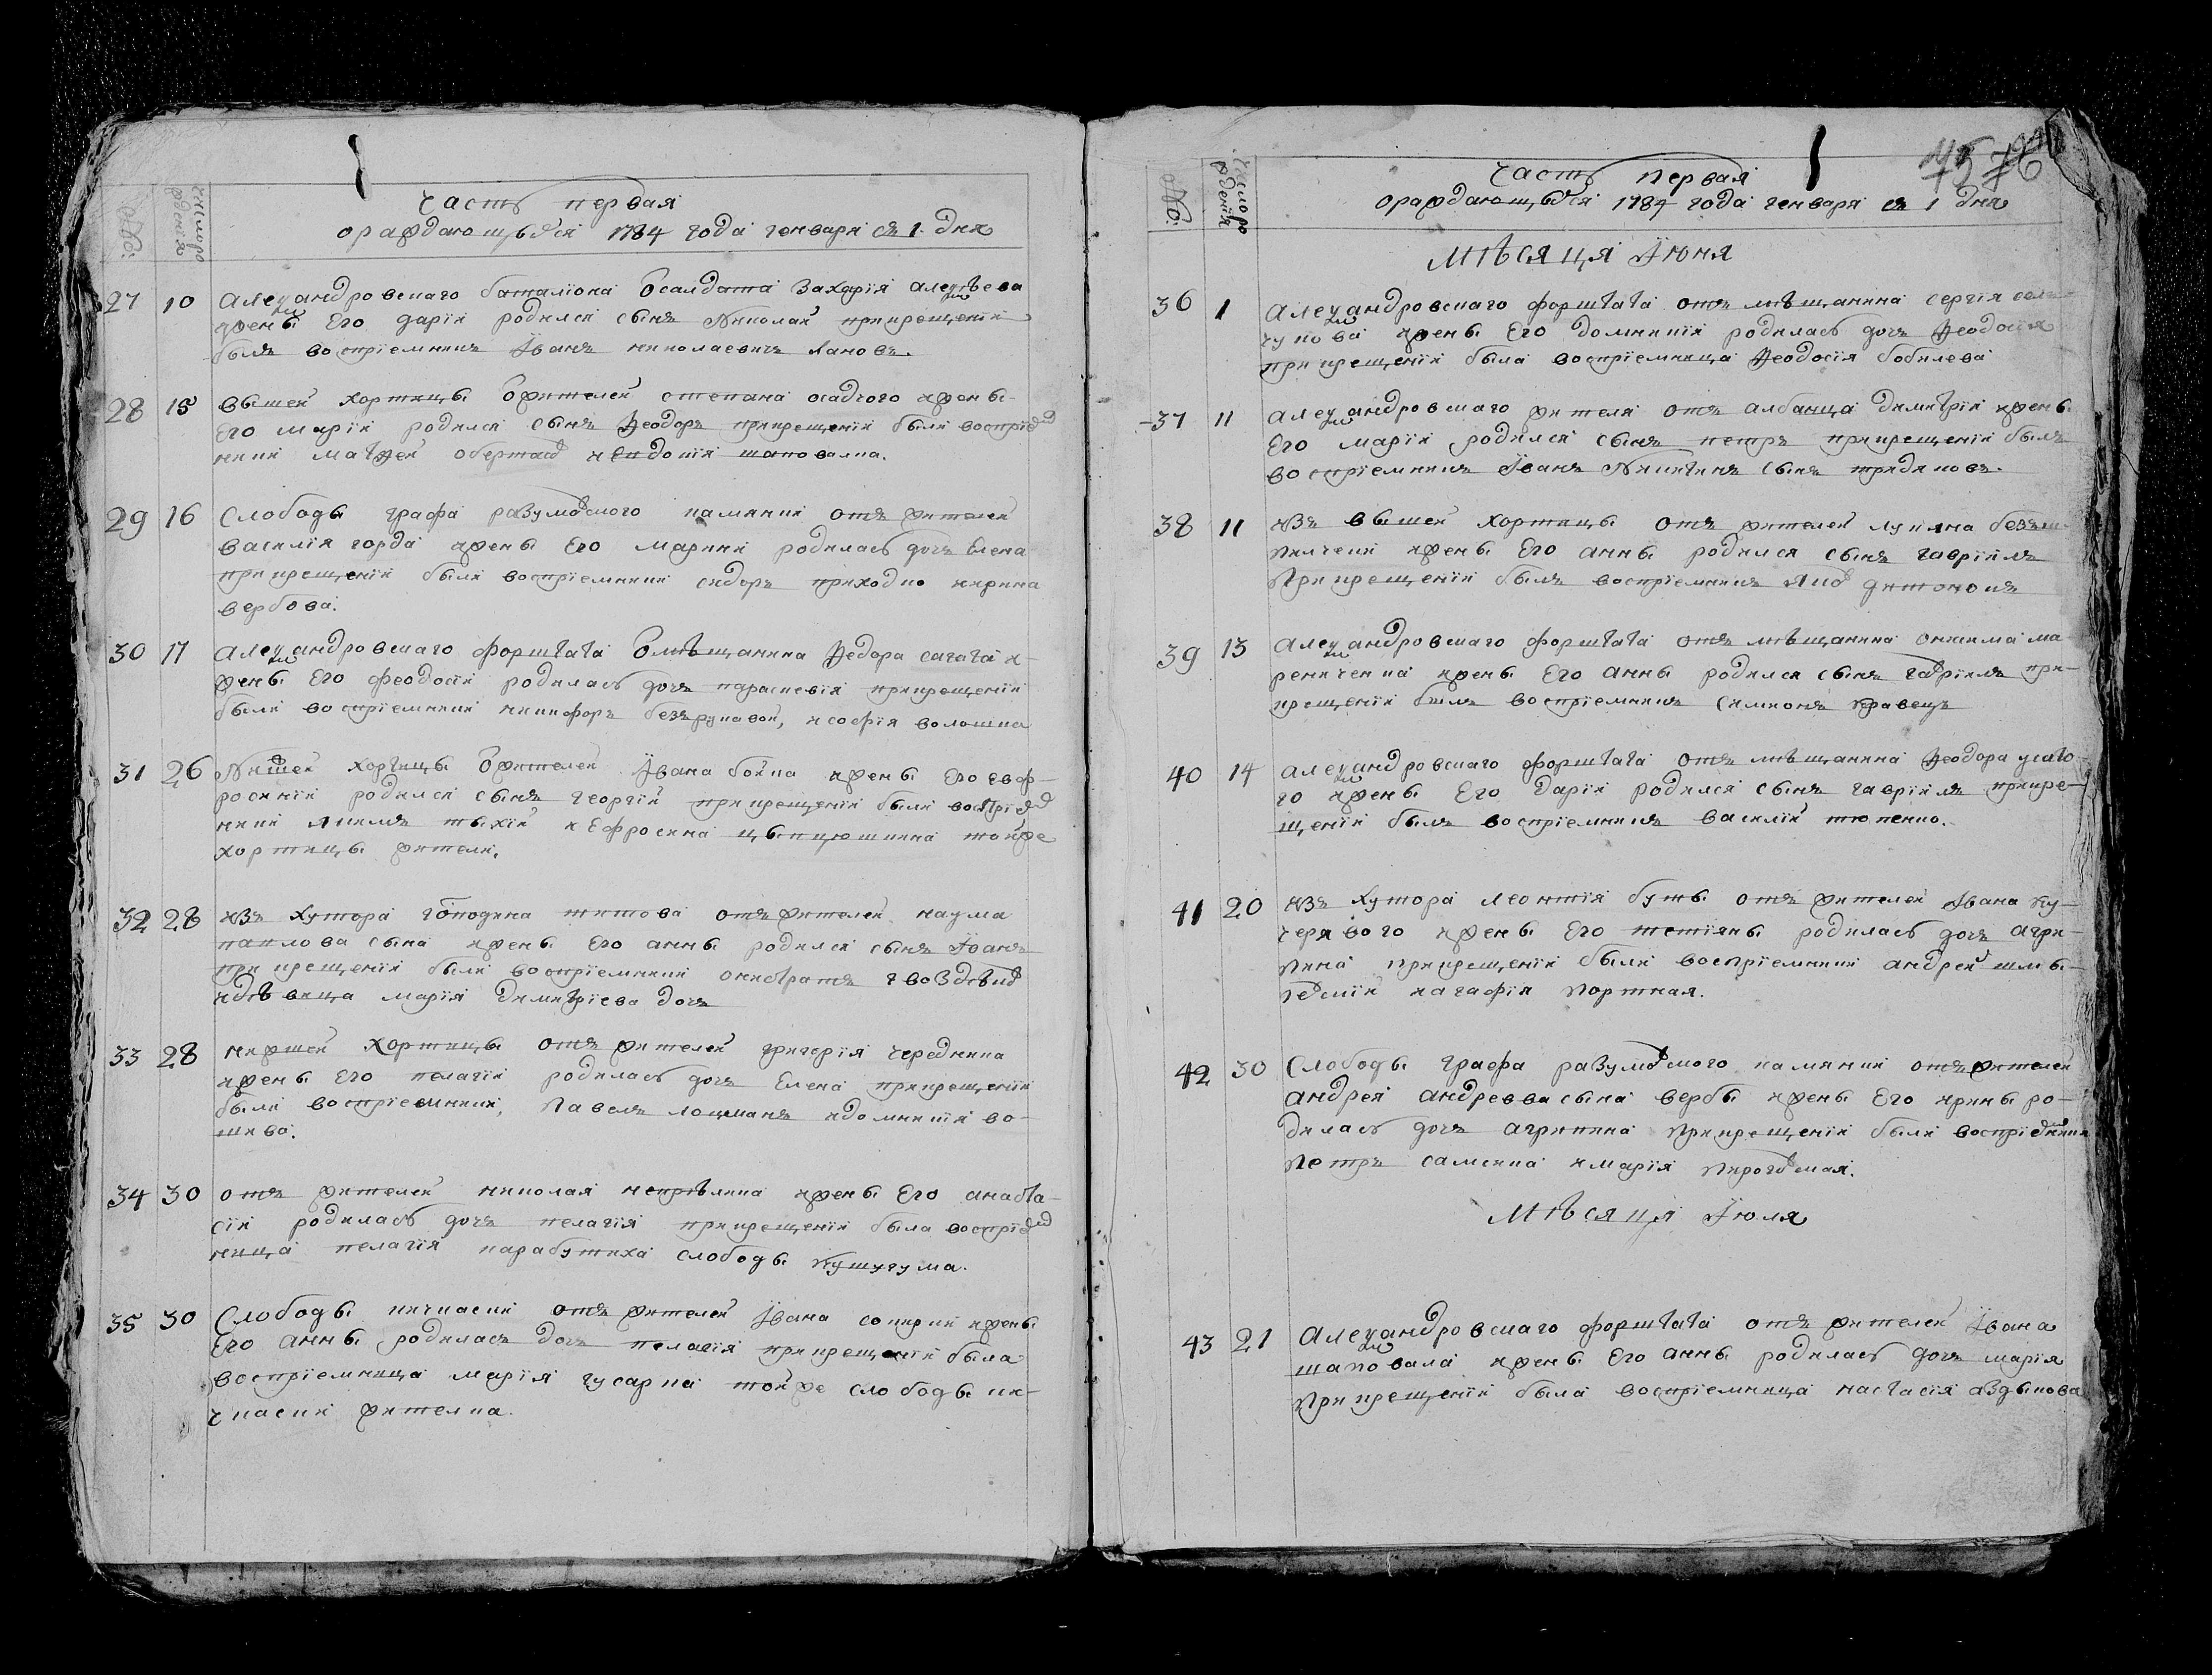 Часть первая
ораждающихся 1784 года генваря съ 1 дня
№:
число рождения
27 10 Александровскаго баталиона Ѡ салдата Захария алексѣева
и жены Его дарiи родился сынъ Николай при крещенiи
былъ воспрiемникъ Iванъ николаевичъ Лановъ.
28 15 вышей хортицы Ѡ жителей степана осадчого и жены
Его марiи родился сынъ Ѳеодоръ при крещенiи были воспрiем
ники матѳей и Евдокiя шаповалка.
29 16 Слободы графа разумовского камянки отъ жителей
василiя горда и жены Его марины родилась дочь Елена
при крещенiи были воспрiемники сидоръ приходко и ирина
вербова.
30 17 Александровскаго форштата Ѡ мѣщанина Ѳедора сагата и
жены Его феодосiи родилась дочь параскевiя при крещенiи
были воспрiемники никифоръ безрукавой, и софiя волошка
31 26 Нижшей хортицы Ѡ жителей Iвана бойка и жены Его евф-
росинiи родился сынъ георгiй при крещенiи были воспрiем
ники якимъ тыхiй и Ефросина тойже
хортицы жители.
32 28 изъ хутора господина титова отъ жителей наума
павлова сына и жены Его анны родился сынъ Iоанъ
при крещенiи были воспрiемники
и дѣвица марiя димитрiева дочь
33 28 нижшей хортицы отъ жителей григорiя чередника
и жены Его пелагiи родилась дочь Елена при крещенiи
были воспрiемники, Павелъ лоцманъ и домникiя во-
шива.
34 30 отъ жителей николая и жены Его анаста-
сiи родилась дочь пелагiя при крещенiи была воспрiем
ница пелагiя карабутиха слободы кушугума.
35 30 Слободы никчаски отъ жителей Iвана и жены
Его анны родилась дочь пелагiя при крещенiи была
воспрiемница марiя гусарка тойже слободы ни-
часки жителка.
75 76
Часть первая
ораждающихся 1784 года генваря съ 1 дня
№:
число рождения
мѣсяця Iюня
36 1 Александровскаго форштата отъ мѣщанина сергiя селе-
чукова и жены Его домникiи родилась дочь Ѳеодосiя
при крещенiи была воспрiемница Ѳеодосiя бобилева
37 11 Александровскаго жителя отъ албанца димитрiя и жены
Его марiи родился сынъ петръ при крещенiи былъ
воспрiемникъ Iванъ Никитинъ сынъ
38 11 изъ вышей хортицы отъ жителей лукяна
и жены Его анны родился сынъ гаврiилъ
При крещенiи былъ воспрiемникъ
39 13 Александровскаго форштата отъ мѣщанина онисима ма-
рениченка и жены Его анны родился сынъ гаврiилъ при
крещенiи былъ воспрiемникъ симионъ кравець
40 14 Александровскаго форштата отъ мѣщанина Ѳеодора усато-
го и жены Его дарiи родился сынъ гаврiилъ при кре-
щенiи былъ воспрiемникъ василiй
41 20 изъ хутора леонтiя буты отъ жителей Iвана ку-
черявого и жены Его тетiяны родилась дочь агри-
пина при крещенiи были воспрiемники андрей
и агафiя Портная.
42 30 Слободы графа разумовского камянки отъ жителей
андрея андреева сына вербы и жены Его ирины ро-
дилась дочь агрипина при крещенiи были воспрiемники
Петръ и марiя
Мѣсяця Iюля
43 21 Александровскаго форштата отъ жителей Iвана
шаповала и жены Его анны родилась дочь марiя
При крещенiи была воспрiемница настасiя